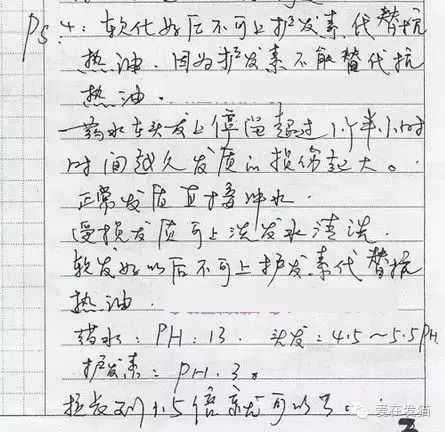 Ps 4: 软化好后不可上护发素代替抗
热油。因为护发素不能替代抗
热油。
药水在头发上停留超过1个半小时
时间越久发质的损伤越大。
正常发质直接冲水
受损发质可上洗发水清洗.
软发好以后不可上护发素代替抗
热油.
药水: PH: 13. 头发: 4.5~5.5PH
护发素: PH. 3。
拉发到1.5倍就可以了。
爱在发猫